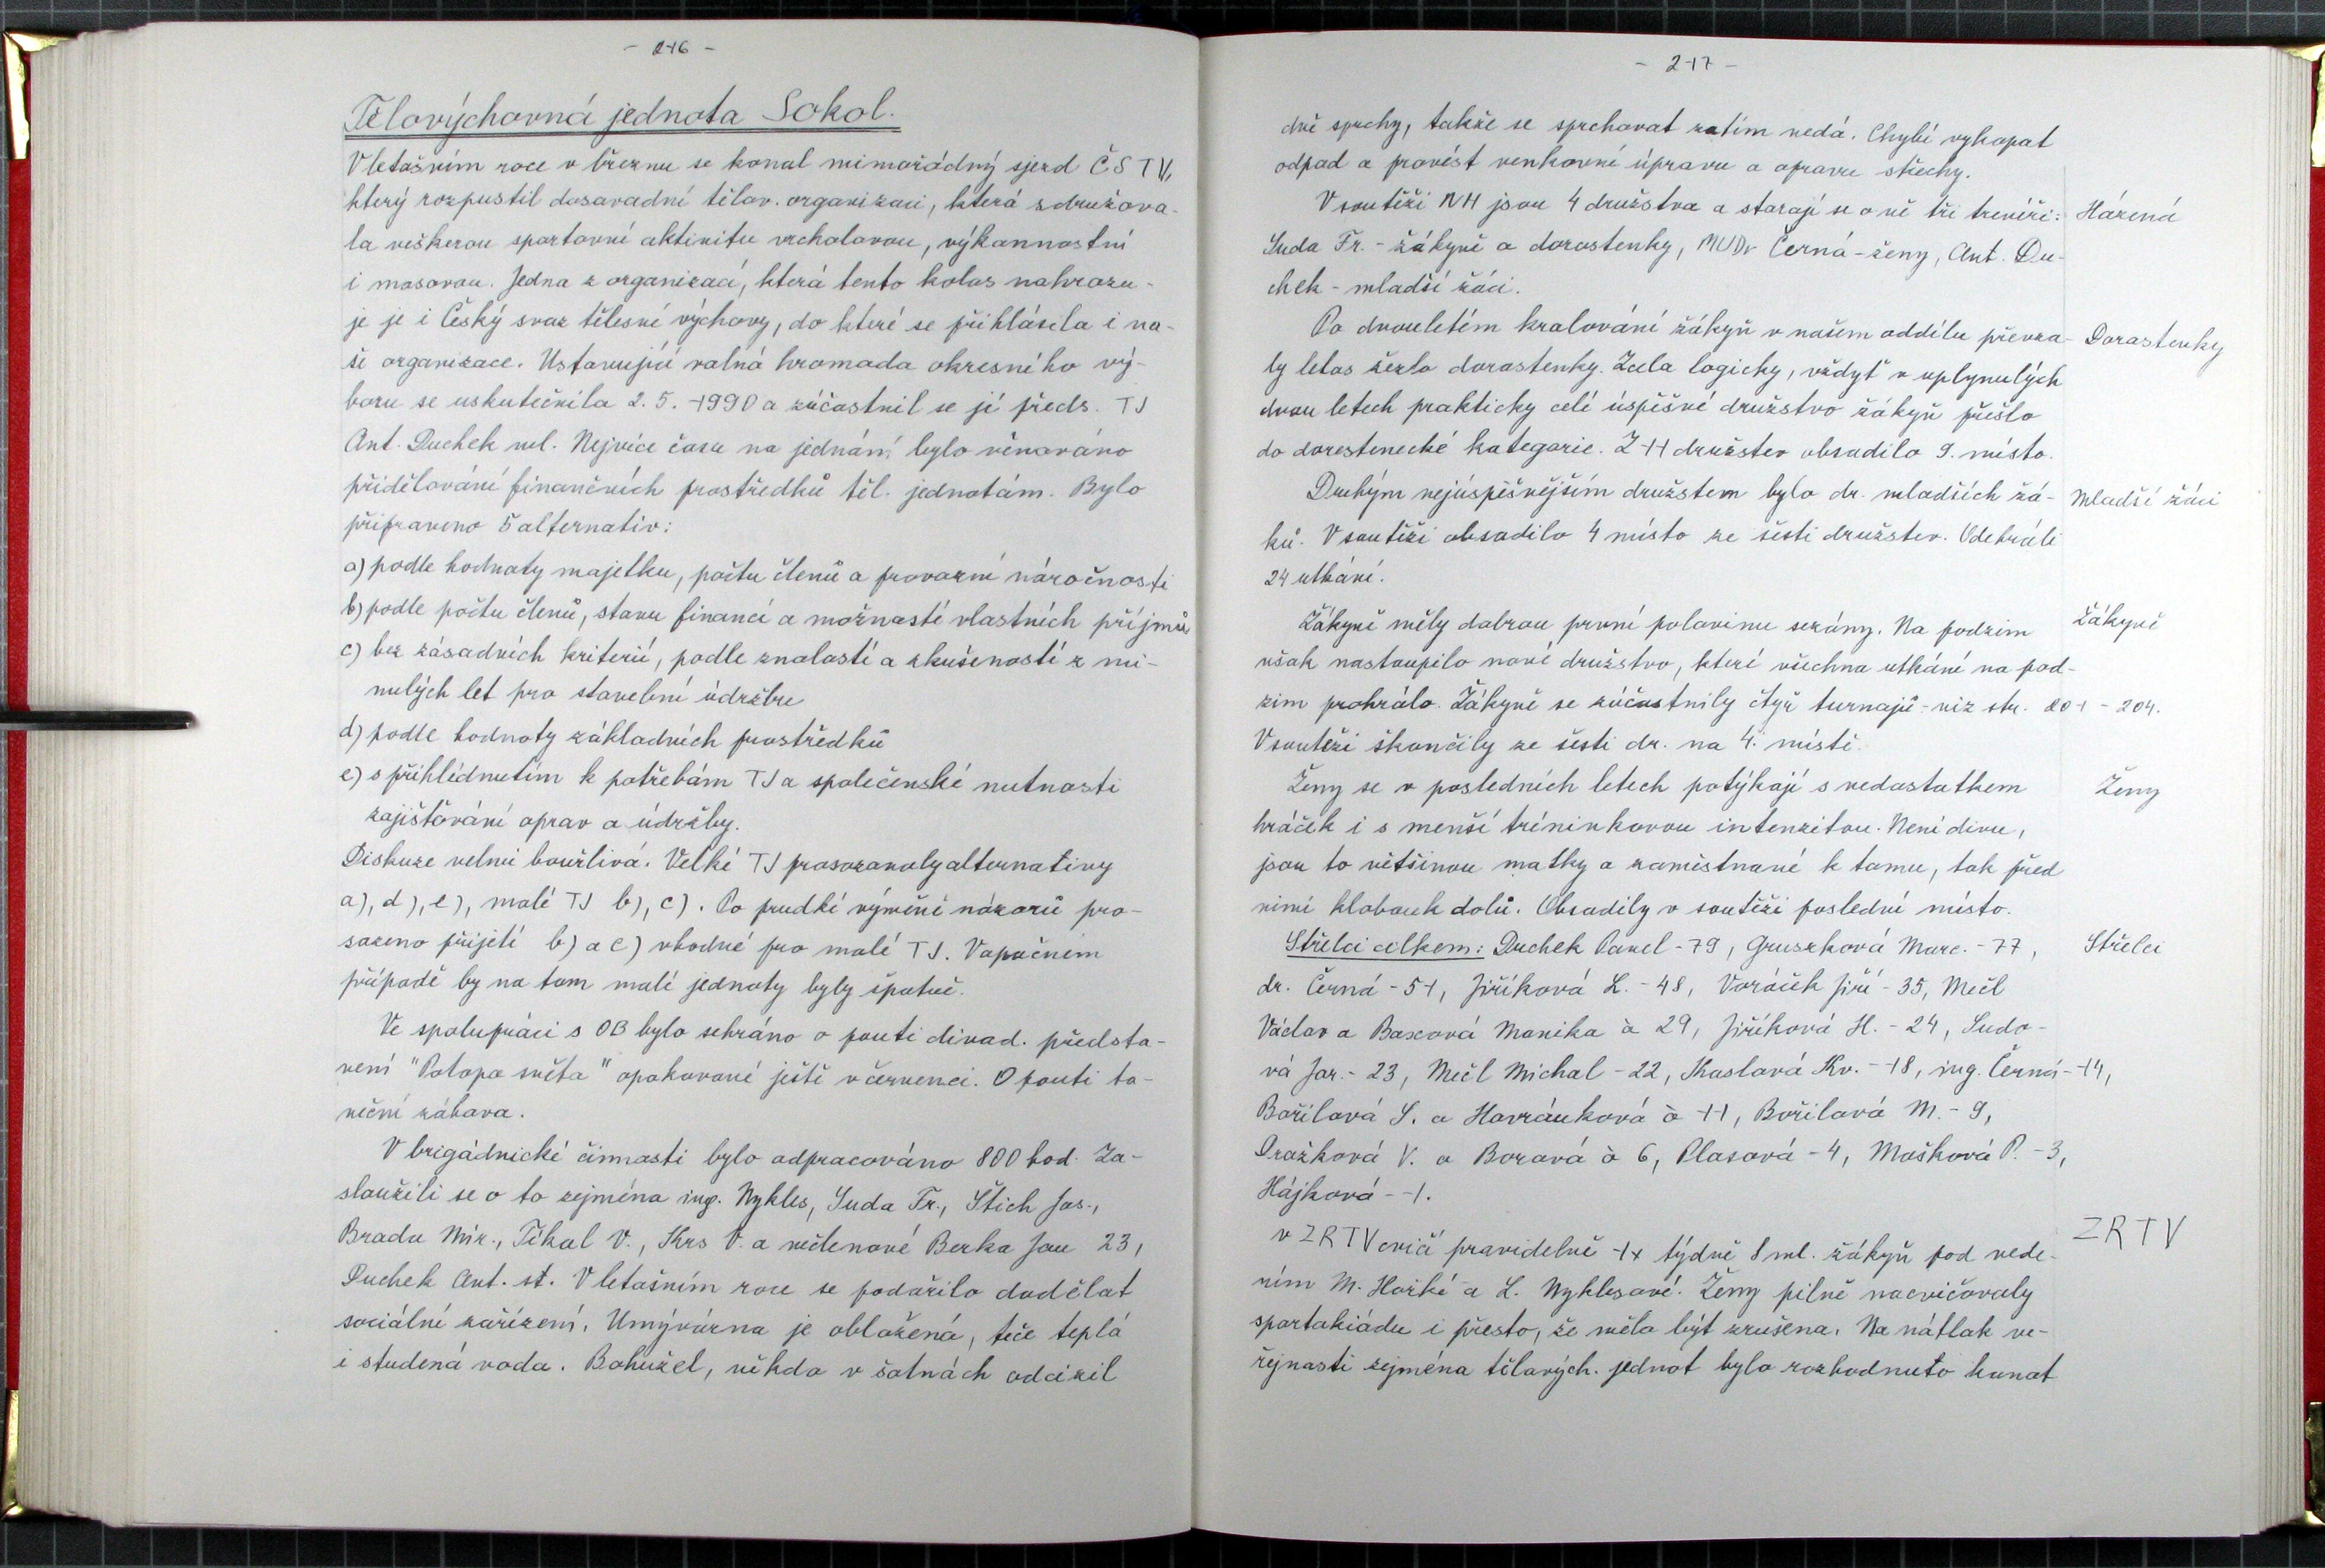 - 216 -
Tělovýchovná jednota Sokol.
V letošním roce v březnu se konal mimořádný sjezd ČSTV,
který rozpustil dosavadní tělov. organizaci, která sdružova-
la veškerou sportovní aktivitu vrcholovou, výkonnostní
i masovou. Jedna z organizací, která tento kolos nahrazu-
je je i Český svaz tělesné výchovy, do které se přihlásila i na-
še organizace. Ustavující valná hromada okresního vý-
boru se uskutečnila 2. 5. 1990 a zúčastnil se jí předs. TJ
Ant. Duchek ml. Nejvíce času na jednání bylo věnováno
přidělování finančních prostředků těl. jednotám. Bylo
připraveno 5 alternativ:
a) podle hodnoty majetku, počtu členů a provozní náročnosti
b) podle počtu členů, stavu financí a možností vlastních příjmů
c) bez zásadních kriterií, podle znalostí a zkušeností z mi-
nulých let pro stavební údržbu
d) podle hodnoty základních prostředků
e) s přihlédnutím k potřebám TJ a společenské nutnosti
zajišťování oprav a údržby.
Diskuze velmi bouřlivá. Velké TJ prosazovaly alternativy
a), d), e), malé TJ b), c). Po prudké výměně názorů pro-
sazeno přijetí b) a c) vhodné pro malé TJ. V opačném
případě by na tom malé jednoty byly špatně.
Ve spolupráci s OB bylo sehráno o pouti divad. předsta-
vení "Potopa světa" opakované ještě v červenci. O pouti ta-
neční zábava.
V brigádnické činnosti bylo odpracováno 800 hod. Za-
sloužili se o to zejména ing. Nykles, Suda Fr., Štich Jos.,
Brada Mir., Tikal V., Krs V. a nečlenové Berka Jan 23,
Duchek Ant. st. V letošním roce se podařilo dodělat
sociální zařízení. Umývárna je obložená, teče teplá
i studená voda. Bohužel, někdo v šatnách odcizil
- 217 -
dvě sprchy, takže se sprchovat zatím nedá. Chybí vykopat
odpad a provést venkovní úpravu a opravu střechy.
V soutěži NH jsou 4 družstva a starají se o ně tři trenéři: Házená
Suda Fr. - žákyně a dorostenky, MUDr Černá - ženy, Ant. Du-
chek - mladší žáci.
Po dvouletém kralování žákyň v našem oddílu převza- Dorostenky
ly letos žezlo dorostenky. Zcela logicky, vždyť v uplynulých
dvou letech prakticky celé úspěšné družstvo žákyň přešlo
do dorestenecké kategorie. Z 11 družstev obsadilo 9. místo.
Druhým nejúspěšnějším družstem bylo dr. mladších žá- Mladší žáci
ků. V soutěži obsadilo 4 místo ze šesti družstev. Odehráli
24 utkání.
Žákyně měly dobrou první polovinu sezóny. Na podzim Žákyně
však nastoupilo nové družstvo, které všechna utkání na pod-
zim prohrálo. Žákyně se zúčastnily čtyř turnajů - viz str. 201 - 204.
V soutěži skončily ze šesti dr. na 4. místě.
Ženy se v posledních letech potýkají s nedostatkem Ženy
hráček i s menší tréninkovou intenzitou. Není divu,
jsou to většinou matky a zaměstnané k tomu, tak před
nimi klobouk dolů. Obsadily v soutěži poslední místo.
Střelci celkem: Duchek Pavel - 79, Gruszková Marc. - 77, Střelci
dr. Černá - 51, Jiříková L. - 48, Voráček Jiří - 35, Mečl
Václav a Baxová Monika à 29, Jiříková H. - 24, Sudo-
vá Jar. - 23, Mečl Michal - 22, Kaslová Kv. - 18, ing. Černá - 14,
Bořilová S. a Havránková à 11, Bořilová M. - 9,
Dražková V. a Borová à 6, Plasová - 4, Mošková P. - 3,
Hájková - 1.
v ZRTV cvičí pravidelně 1x týdně 8 ml. žákyň pod vede- ZRTV
ním M. Horké a L. Nyklesové. Ženy pilně nacvičovaly
spartakiádu i přesto, že měla být zrušena. Na nátlak ve-
řejnosti zejména tělových. jednot bylo rozhodnuto konat